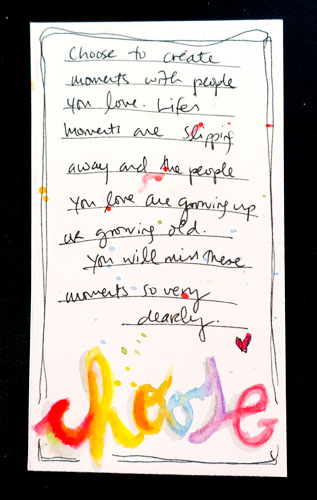 Choose to create
moments with people
you love. Lifes
moments are slipping
away and the people
you love are growing up
or growing old.
You will miss these
moments so very
dearly.
choose